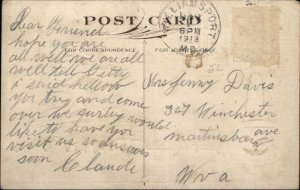 POST CARD
WILLIAMSPORT
6 PM
1913
MD.
FOR CORRESPONDENCE
FOR ADDRESS ONLY
Dear Friend
hope you are
all well we are all
well tell Betty
i said hellow
you try and come
over we surley would
like to have you
visit us
soon
Claude
Mrs Jenny Davis
307 Winchester
ave
martinsburg
W va